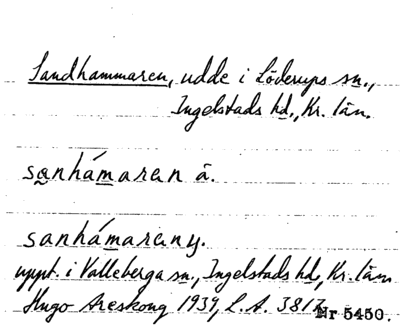 Sandhammaren, udde i Löderups sn.,
Ingelstads hd., Kr. län.
sanhámaren å.
sanhámareny.
uppt. i Valleberga sn., Ingelstads hd., Kr. län
Hugo Areskoug 1939, L.A. 3817
Nr 5450.